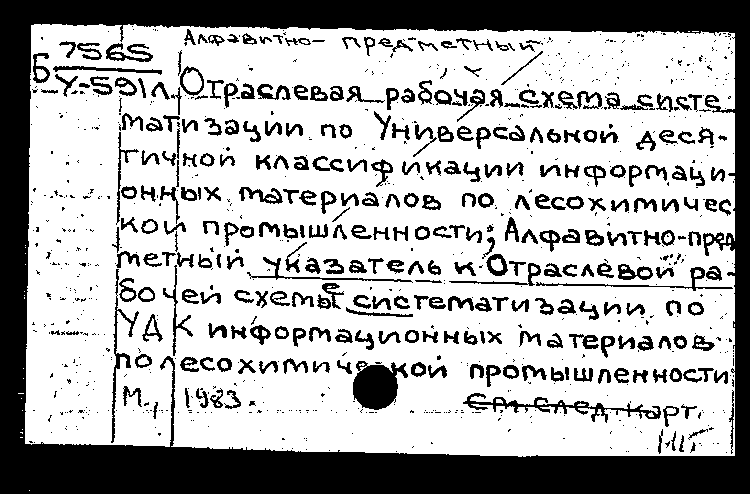 Алфавитно-предметный
Б 7565
У-591л Отраслевая рабочая схема систе
матизации по Универсальной деся-
тичной классификации информаци-
онных материалов по лесохимичес
кой промышленности; Алфавитно-пред
метный указатель к Отраслевой ра-
бочей схеме систематизации по
УДК информационных материалов
по лесохимической промышленности
М., 1983.
См. след. карт.